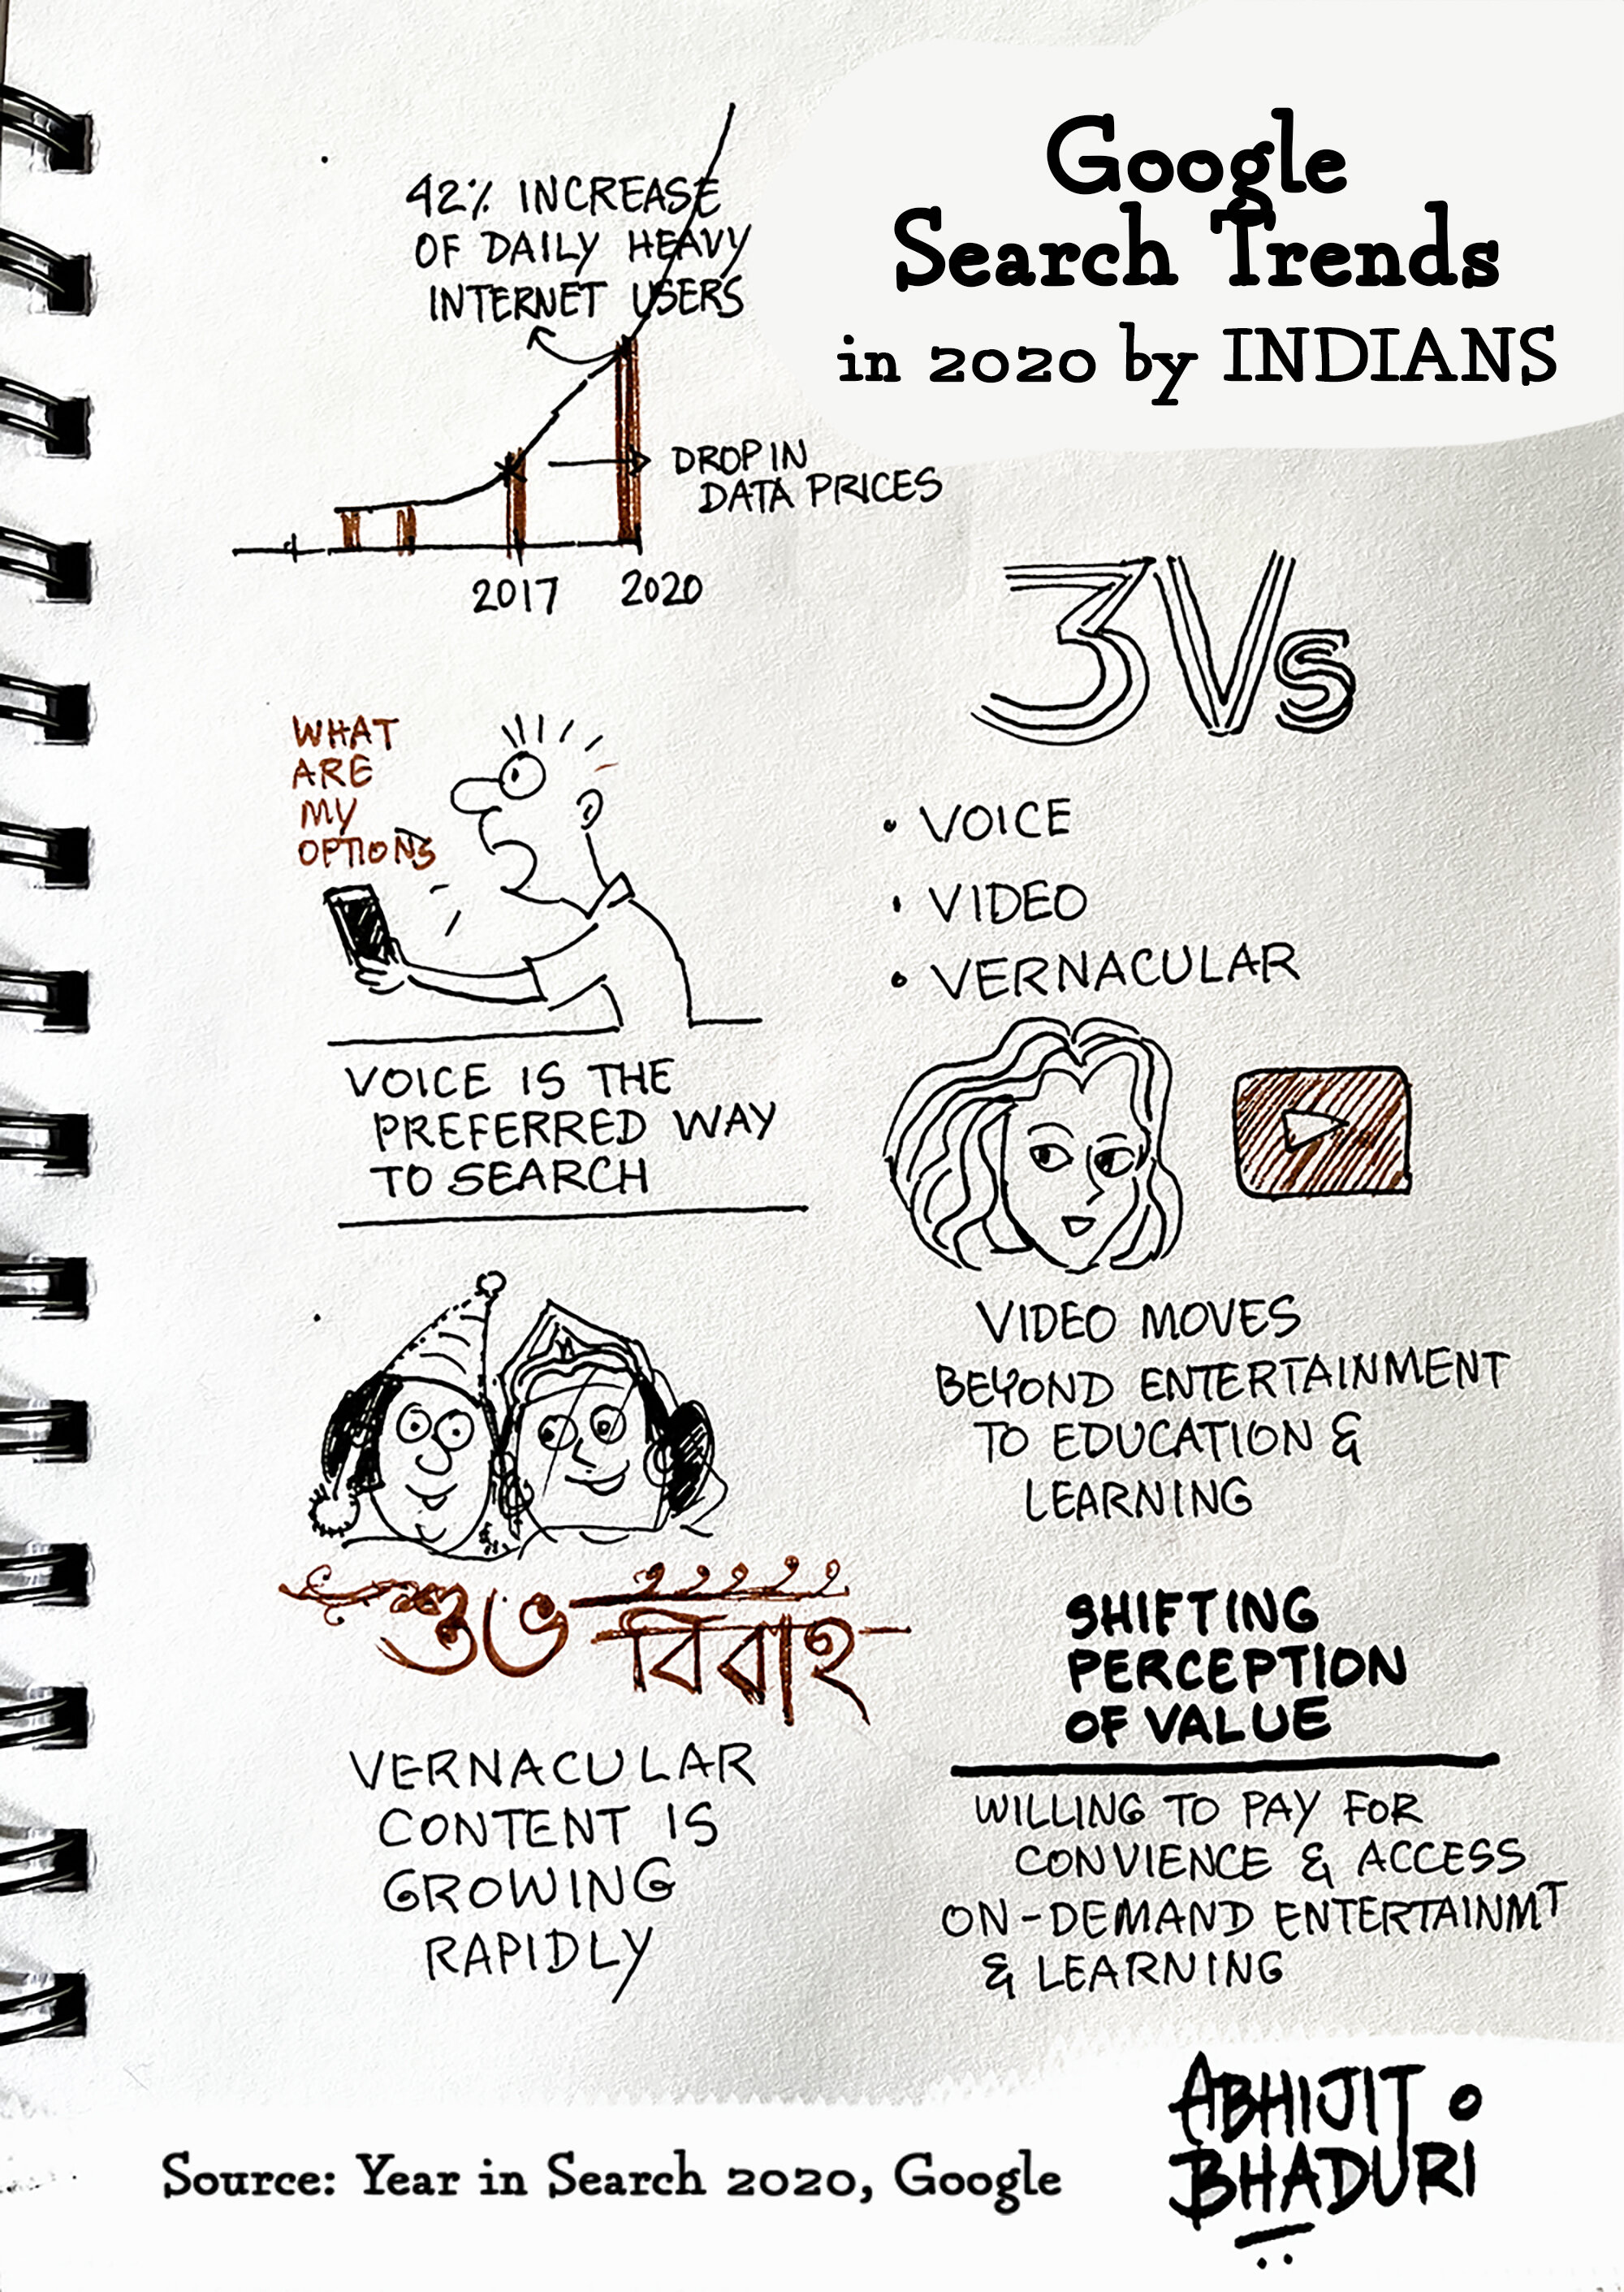 Google
Search Trends
in 2020 by INDIANS
42% INCREASE
OF DAILY HEAVY
INTERNET USERS
DROP IN
DATA PRICES
2017 2020
3Vs
• VOICE
• VIDEO
• VERNACULAR
WHAT
ARE
MY
OPTIONS
VOICE IS THE
PREFERRED WAY
TO SEARCH
VIDEO MOVES
BEYOND ENTERTAINMENT
TO EDUCATION &
LEARNING
শুভ বিবাহ
VERNACULAR
CONTENT IS
GROWING
RAPIDLY
SHIFTING
PERCEPTION
OF VALUE
WILLING TO PAY FOR
CONVIENCE & ACCESS
ON-DEMAND ENTERTAINMT
& LEARNING
Source: Year in Search 2020, Google
ABHIJIT
BHADURI